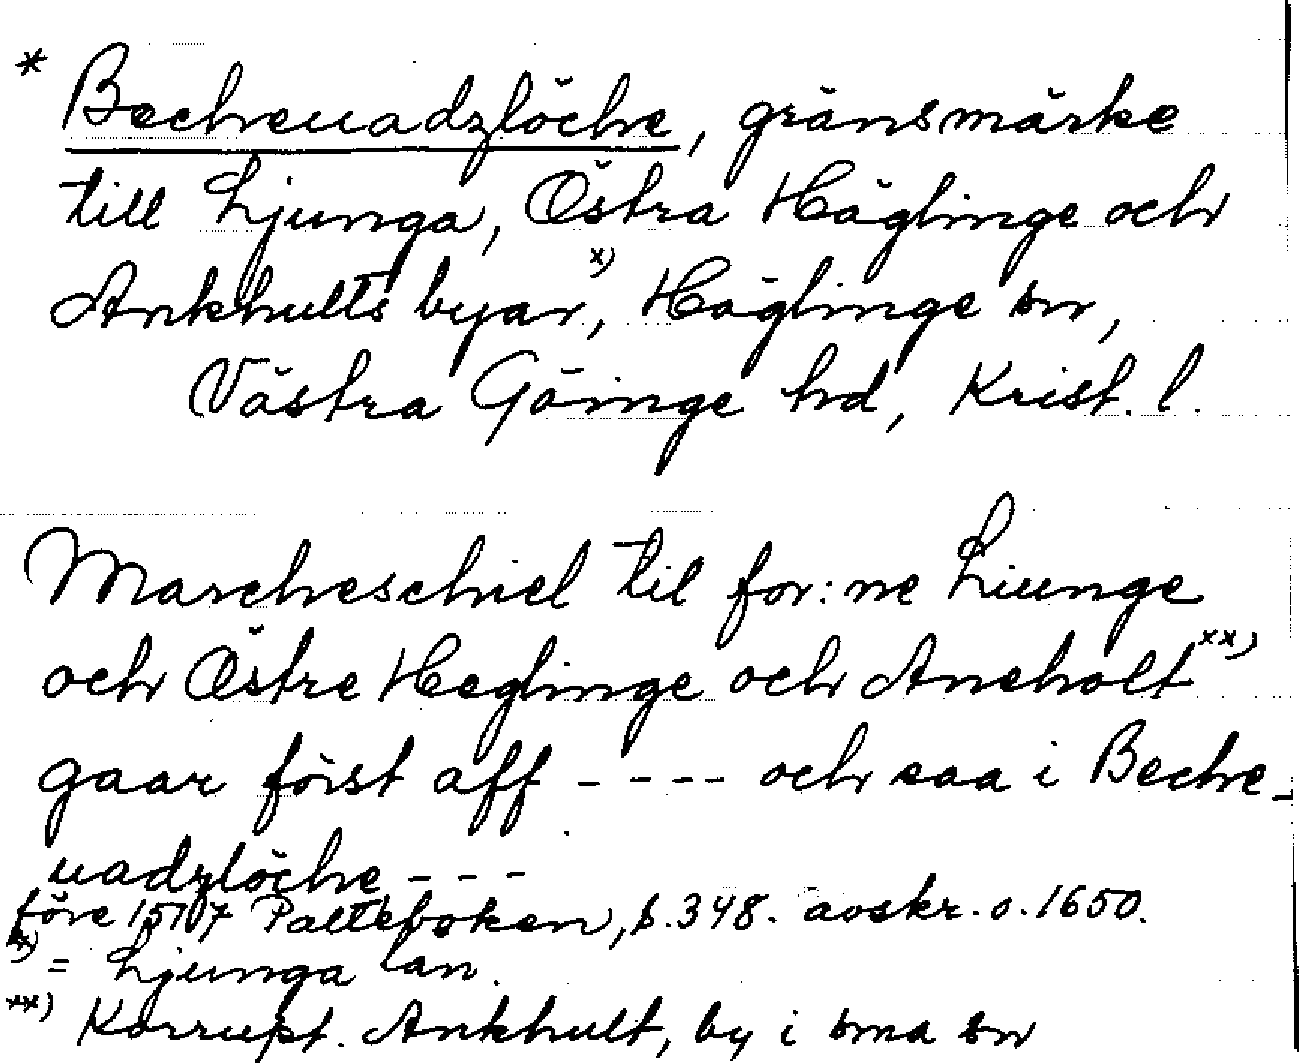 * Becheuadzlöche, gränsmärke
till Ljunga, Östra Häglinge och
Ankhults byar, x) Häglinge sn,
Västra Göinge hd, Krist. l.
Marcheschiel til for:ne Liunge
och Östre Heglinge och Aneholt xx)
gaar först aff - - - - och saa i Beche-
uadzlöche - - -
före Palteboken, s. 348. avskr. o. 1650.
x) = Ljunga lan.
xx) Korrupt. Ankhult, by i sma sn